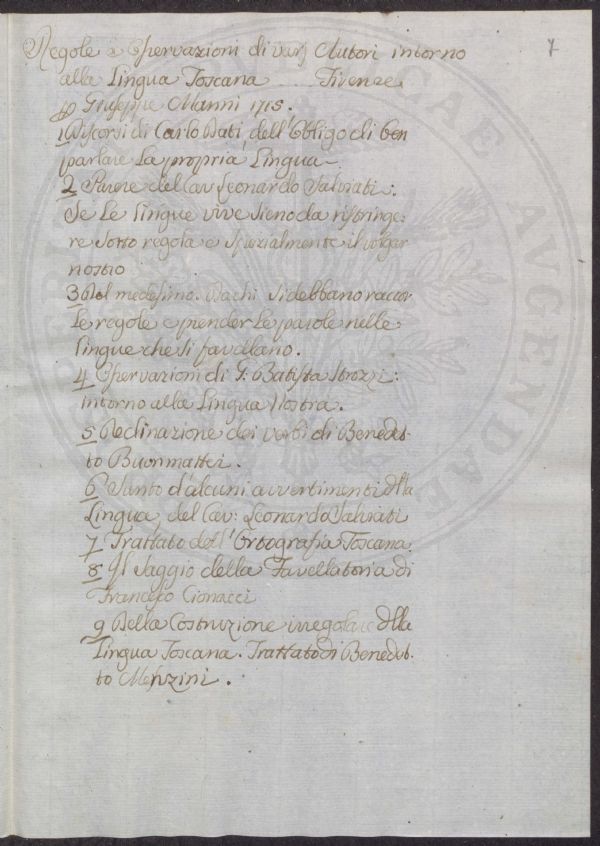 7
Regole e Osservazioni di varj Autori intorno
alla Lingua Toscana Firenze
p Giuseppe Manni 1715.
1 Discorsi di Carlo Dati dell'Obligo di ben
parlare la propria Lingua
2 Parere del Cav Leonardo Salviati:
Se Le lingue vive sieno da ristringe:
re sotto regola e spezialmente il volgar
nostro
3 Del medesimo. Da chi si debbano raccor
Le regole e prender Le parole nelle
lingue che si favellano.
4 Osservazioni di G: Batista Strozzi:
intorno alla Lingua Nostra.
5 Declinazione dei verbi di Benedet-
to Buonmattei.
6 Sunto d'alcuni avvertimenti dlla
Lingua, del Cav: Leonardo Salviati
7 Trattato dell'Ortografia Toscana.
8 Il Saggio della Favellatoria di
Francesco Cionacci
9 Della Costruzione irregolare dlla
Lingua Toscana. Trattato di Benedet-
to Menzini.